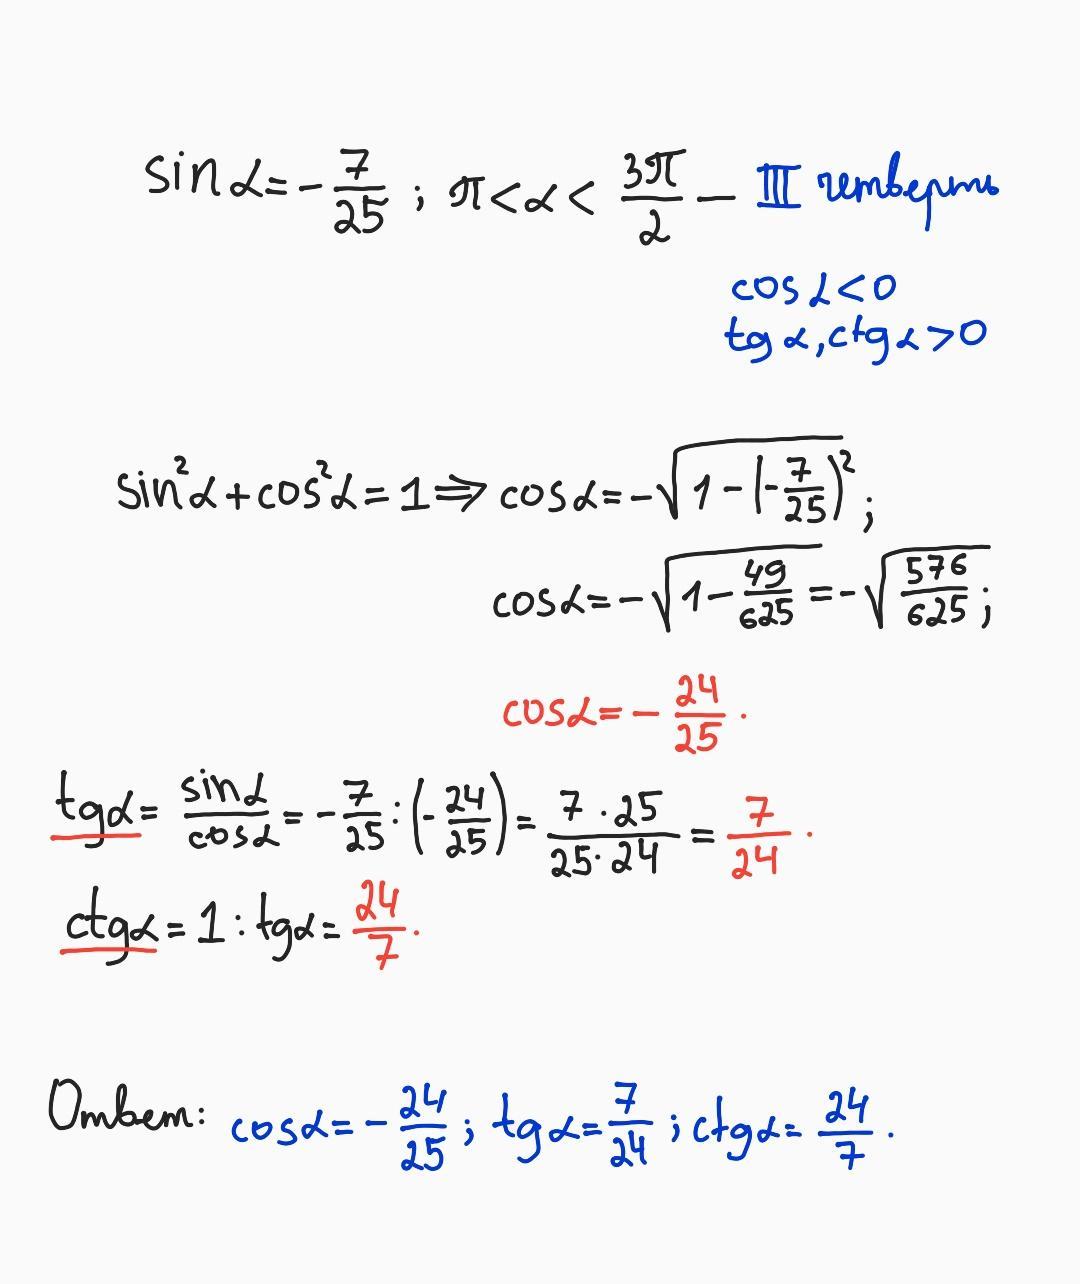 sin α = - 7/25 ; π < α < 3π/2 — III четверть
cos α < 0
tg α, ctg α > 0
sin²α + cos²α = 1 ⇒ cos α = -√(1 - (-7/25)²);
cos α = -√(1 - 49/625) = -√(576/625);
cos α = - 24/25.
tg α = sin α/cos α = - 7/25 : (- 24/25) = 7 · 25/25 · 24 = 7/24.
ctg α = 1 : tg α = 24/7.
Ответ: cos α = - 24/25 ; tg α = 7/24 ; ctg α = 24/7.